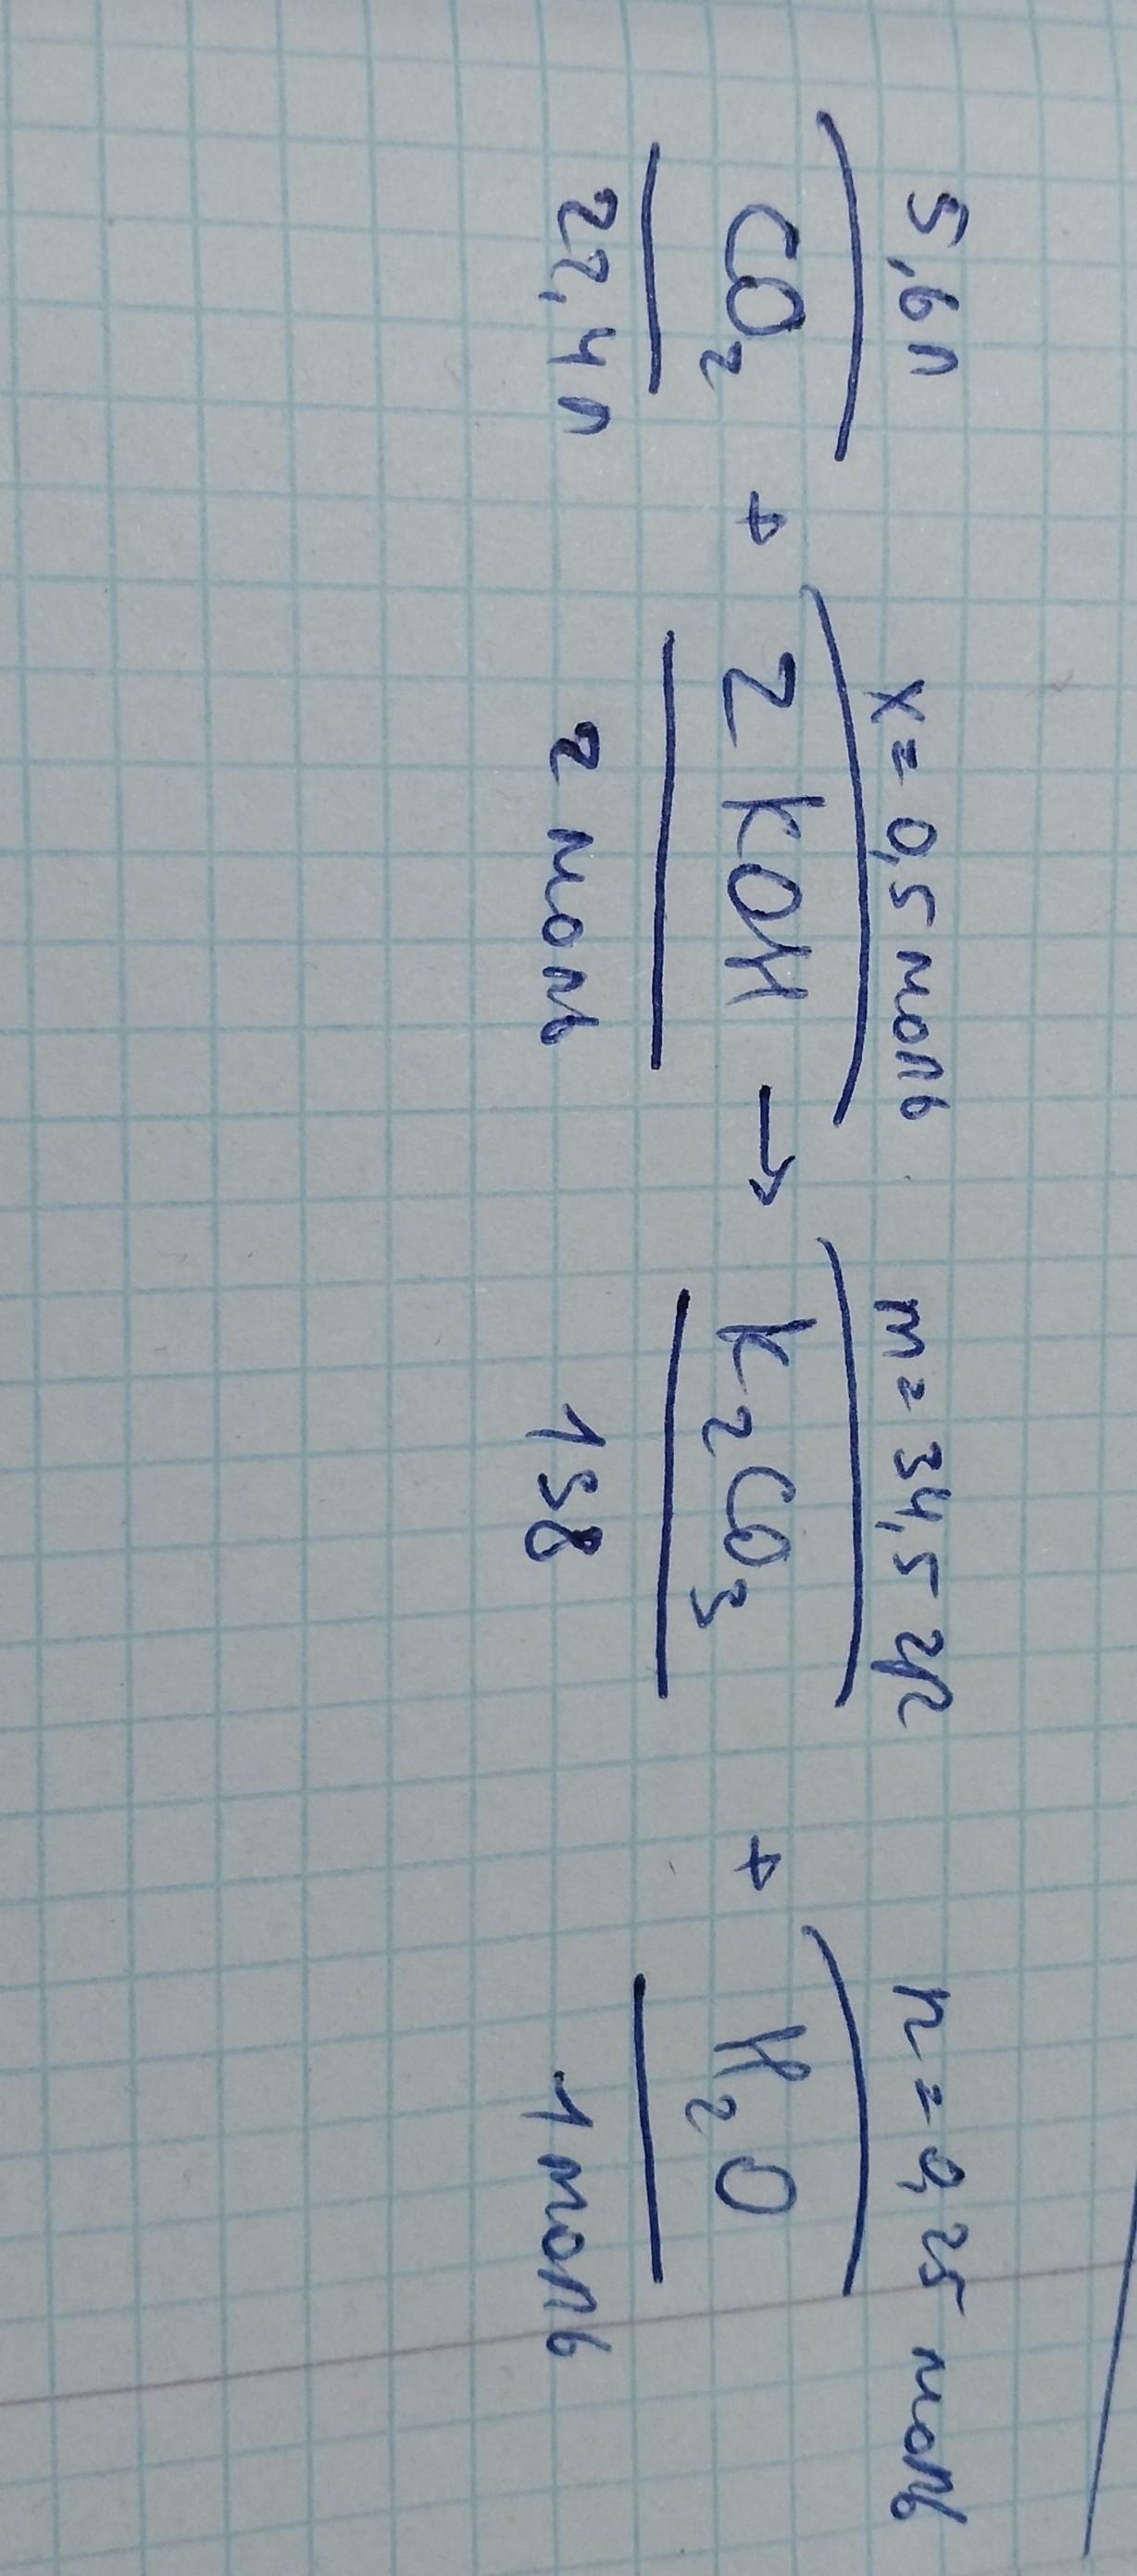 5,6л x=0,5моль m=34,5 гр n=0,25 моль
CO₂ + 2KOH → K₂CO₃ + H₂O
22,4л 2 моль 138 1 моль